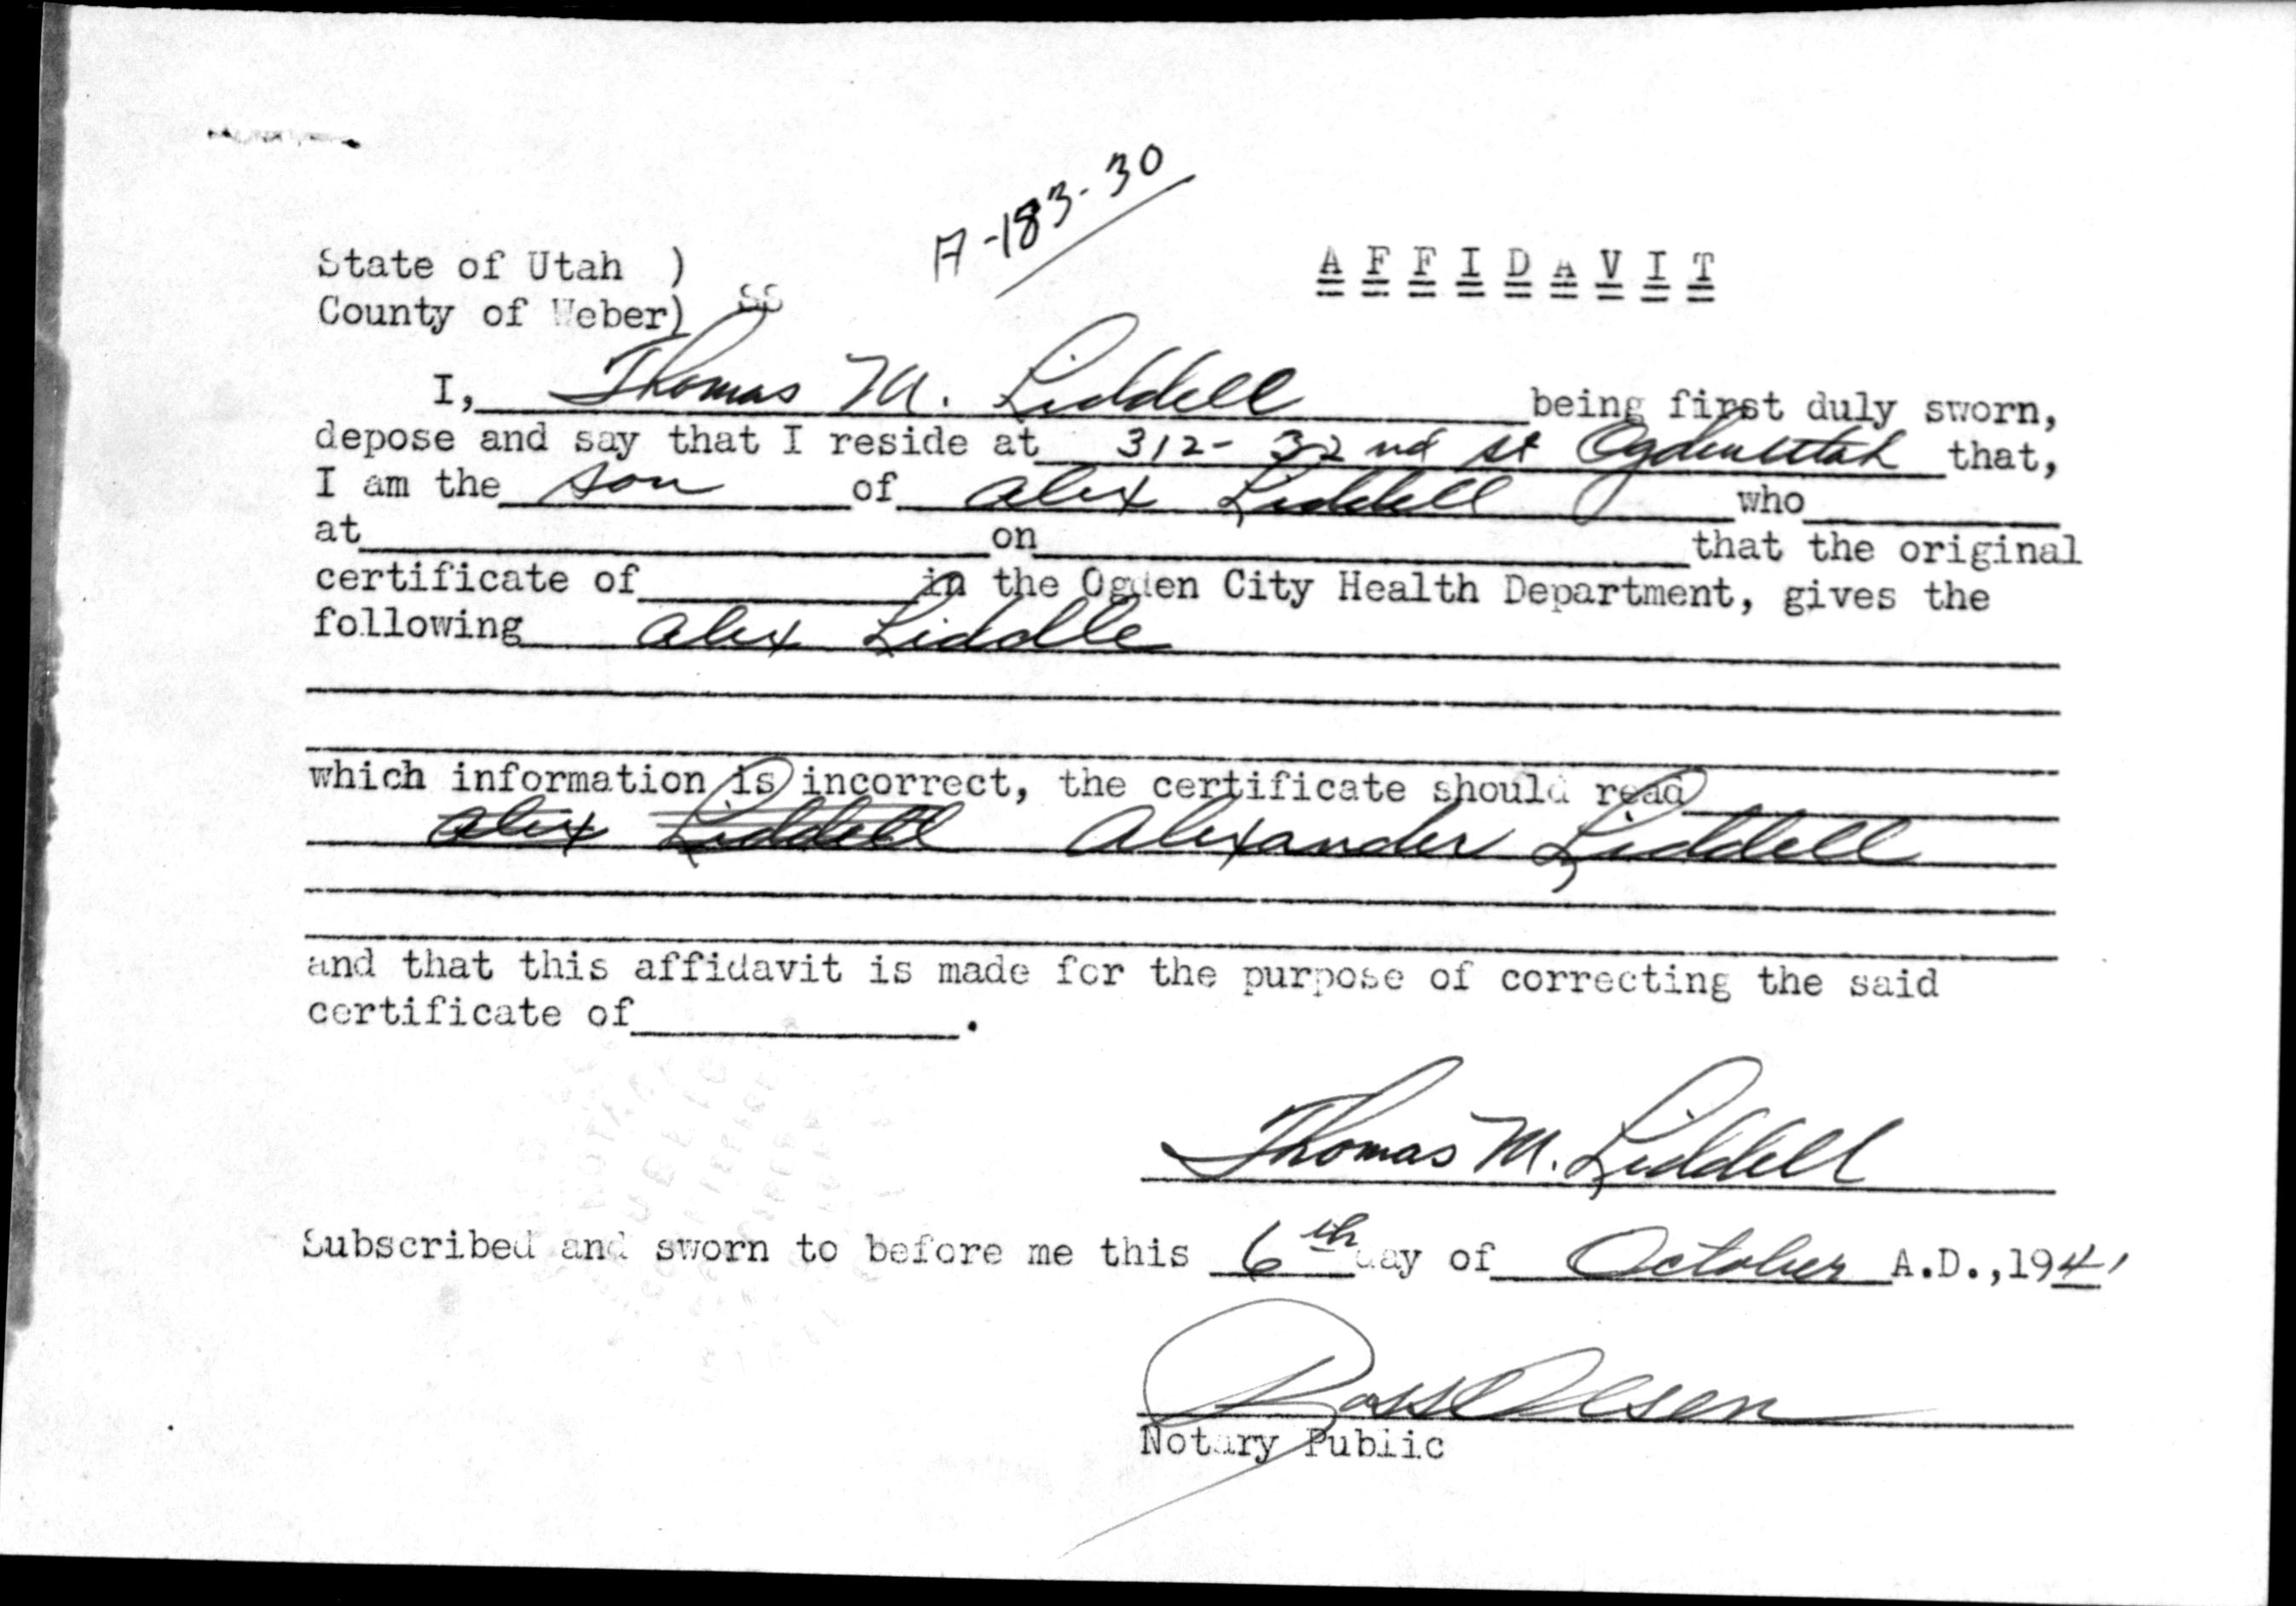 A-183-30
State of Utah )
County of Weber) SS
AFFIDAVIT
I, Thomas M. Liddell being first duly sworn,
depose and say that I reside at 312-32nd st Ogden Utah that,
I am the son of Alex Liddell who
at on that the original
certificate of in the Ogden City Health Department, gives the
following Alex Liddle
which information is incorrect, the certificate should read
Alex Liddell Alexander Liddell
and that this affidavit is made for the purpose of correcting the said
certificate of .
Thomas M. Liddell
Subscribed and sworn to before me this 6th day of October A.D., 1941
Olsen
Notary Public